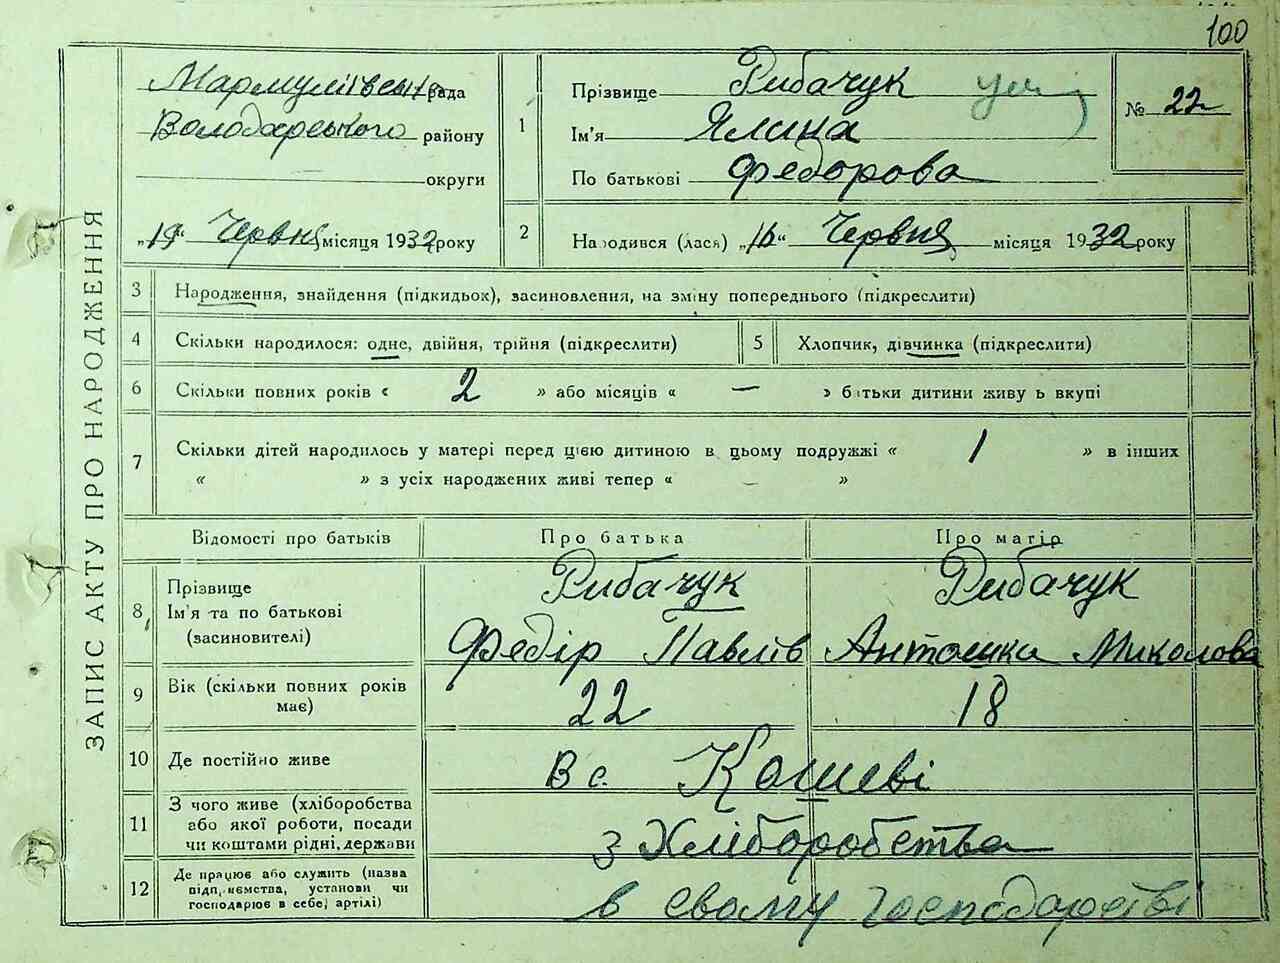 100
ЗАПИС АКТУ ПРО НАРОДЖЕННЯ
Мармуліївська рада
Володарського району
округи
„19“ Червня місяця 1932 року
1
Прізвище Рибачук
Ім'я Ялина
По батькові Федорова
№ 22
2
Народився (лася) „16“ Червня місяця 1932 року
3 Народження, знайдення (підкидьок), засиновлення, на зміну попереднього (підкреслити)
4 Скільки народилося: одне, двійня, трійня (підкреслити)
5 Хлопчик, дівчинка (підкреслити)
6 Скільки повних років « 2 » або місяців « — » батьки дитини живуть вкупі
7 Скільки дітей народилось у матері перед цією дитиною в цьому подружжі « 1 » в інших
« » з усіх народжених живі тепер « – »
Відомості про батьків Про батька Про матір
8 Прізвище
Ім'я та по батькові
(засиновителі)
Рибачук
Федір Павлів
Рибачук
Антошка Миколова
9 Вік (скільки повних років
має)
22 18
10 Де постійно живе В с. Кошеві
11 З чого живе (хліборобства
або якої роботи, посади
чи коштами рідні, держави
з Хліборобства
12 Де працює або служить (назва
підприємства, установи чи
господарює в себе, артілі)
в свому господарстві